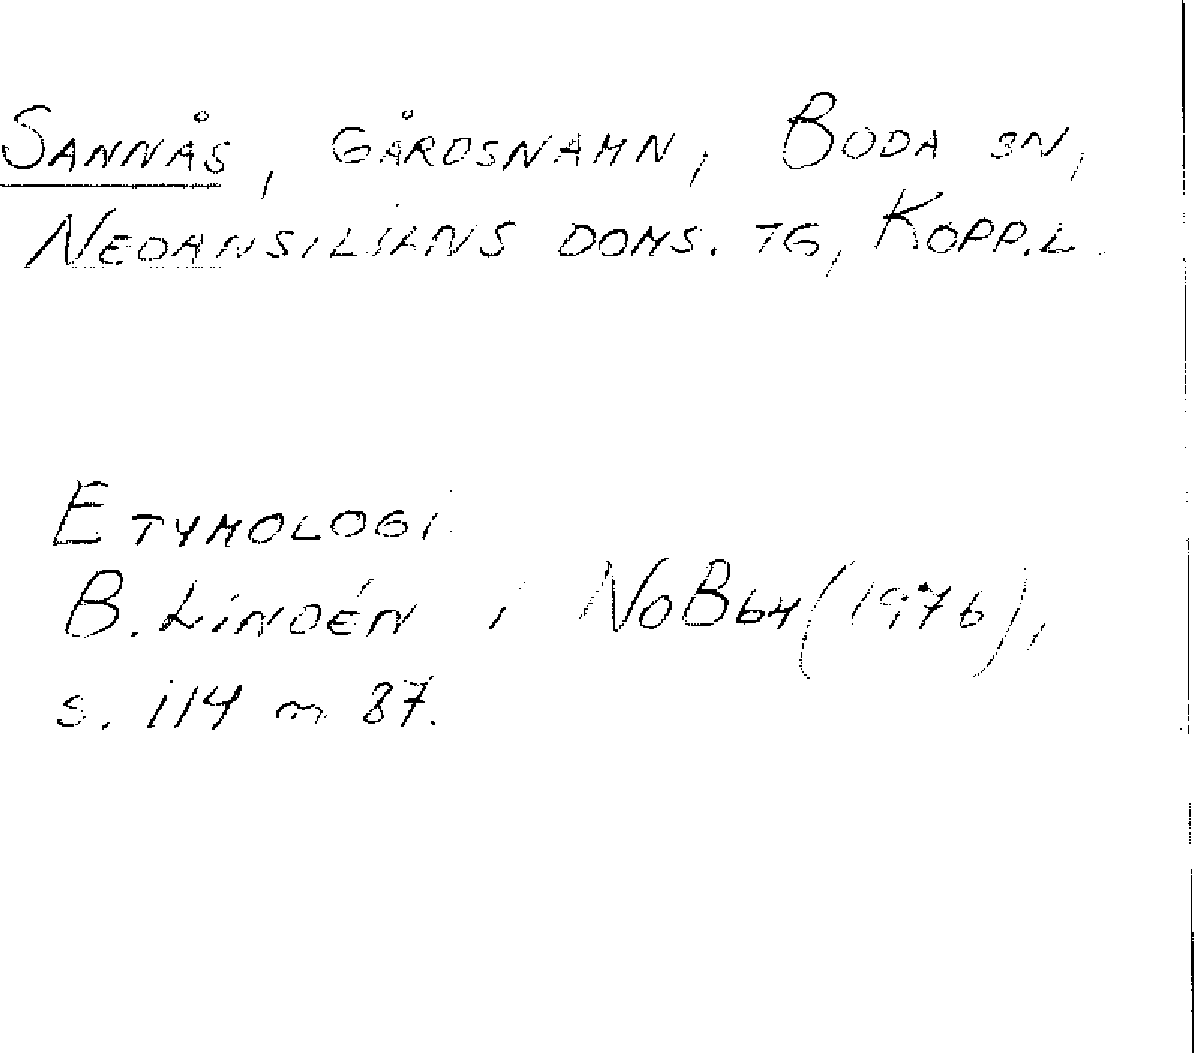 Sannås, gårdsnamn, Boda sn,
Nedansiljans doms. tg, Kopp.l.
Etymologi
B. Lindén i NoB 64 (1976),
s. 114 m 87.